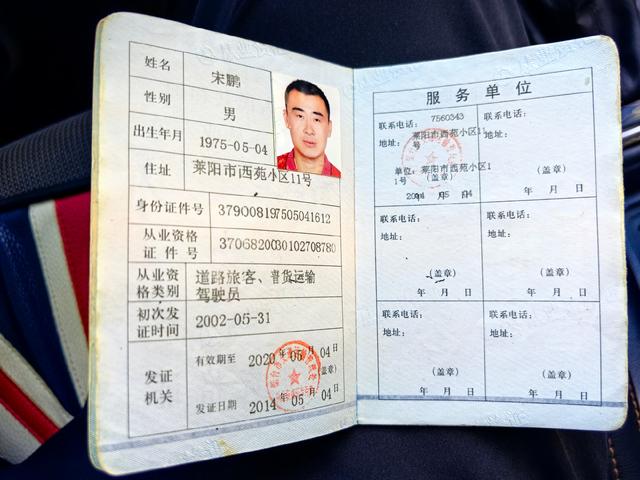 姓名 宋鹏
性别 男
出生年月 1975-05-04
住址 莱阳市西苑小区11号
身份证件号 379008197505041612
从业资格
证件号 37068200301027087 80
从业资
格类别 道路旅客、普货运输
驾驶员
初次发
证时间 2002-05-31
发证
机关
有效期至 2020年05月04日
(盖章)
发证日期 2014年05月04日
服务单位
联系电话: 7560343
地址: 莱阳市西苑小区11
号
单位: 莱阳市西苑小区1
1号
(盖章)
2014年05月04日
联系电话:
地址:
(盖章)
年 月 日
联系电话:
地址:
(盖章)
年 月 日
联系电话:
地址:
(盖章)
年 月 日
联系电话:
地址:
(盖章)
年 月 日
联系电话:
地址:
(盖章)
年 月 日